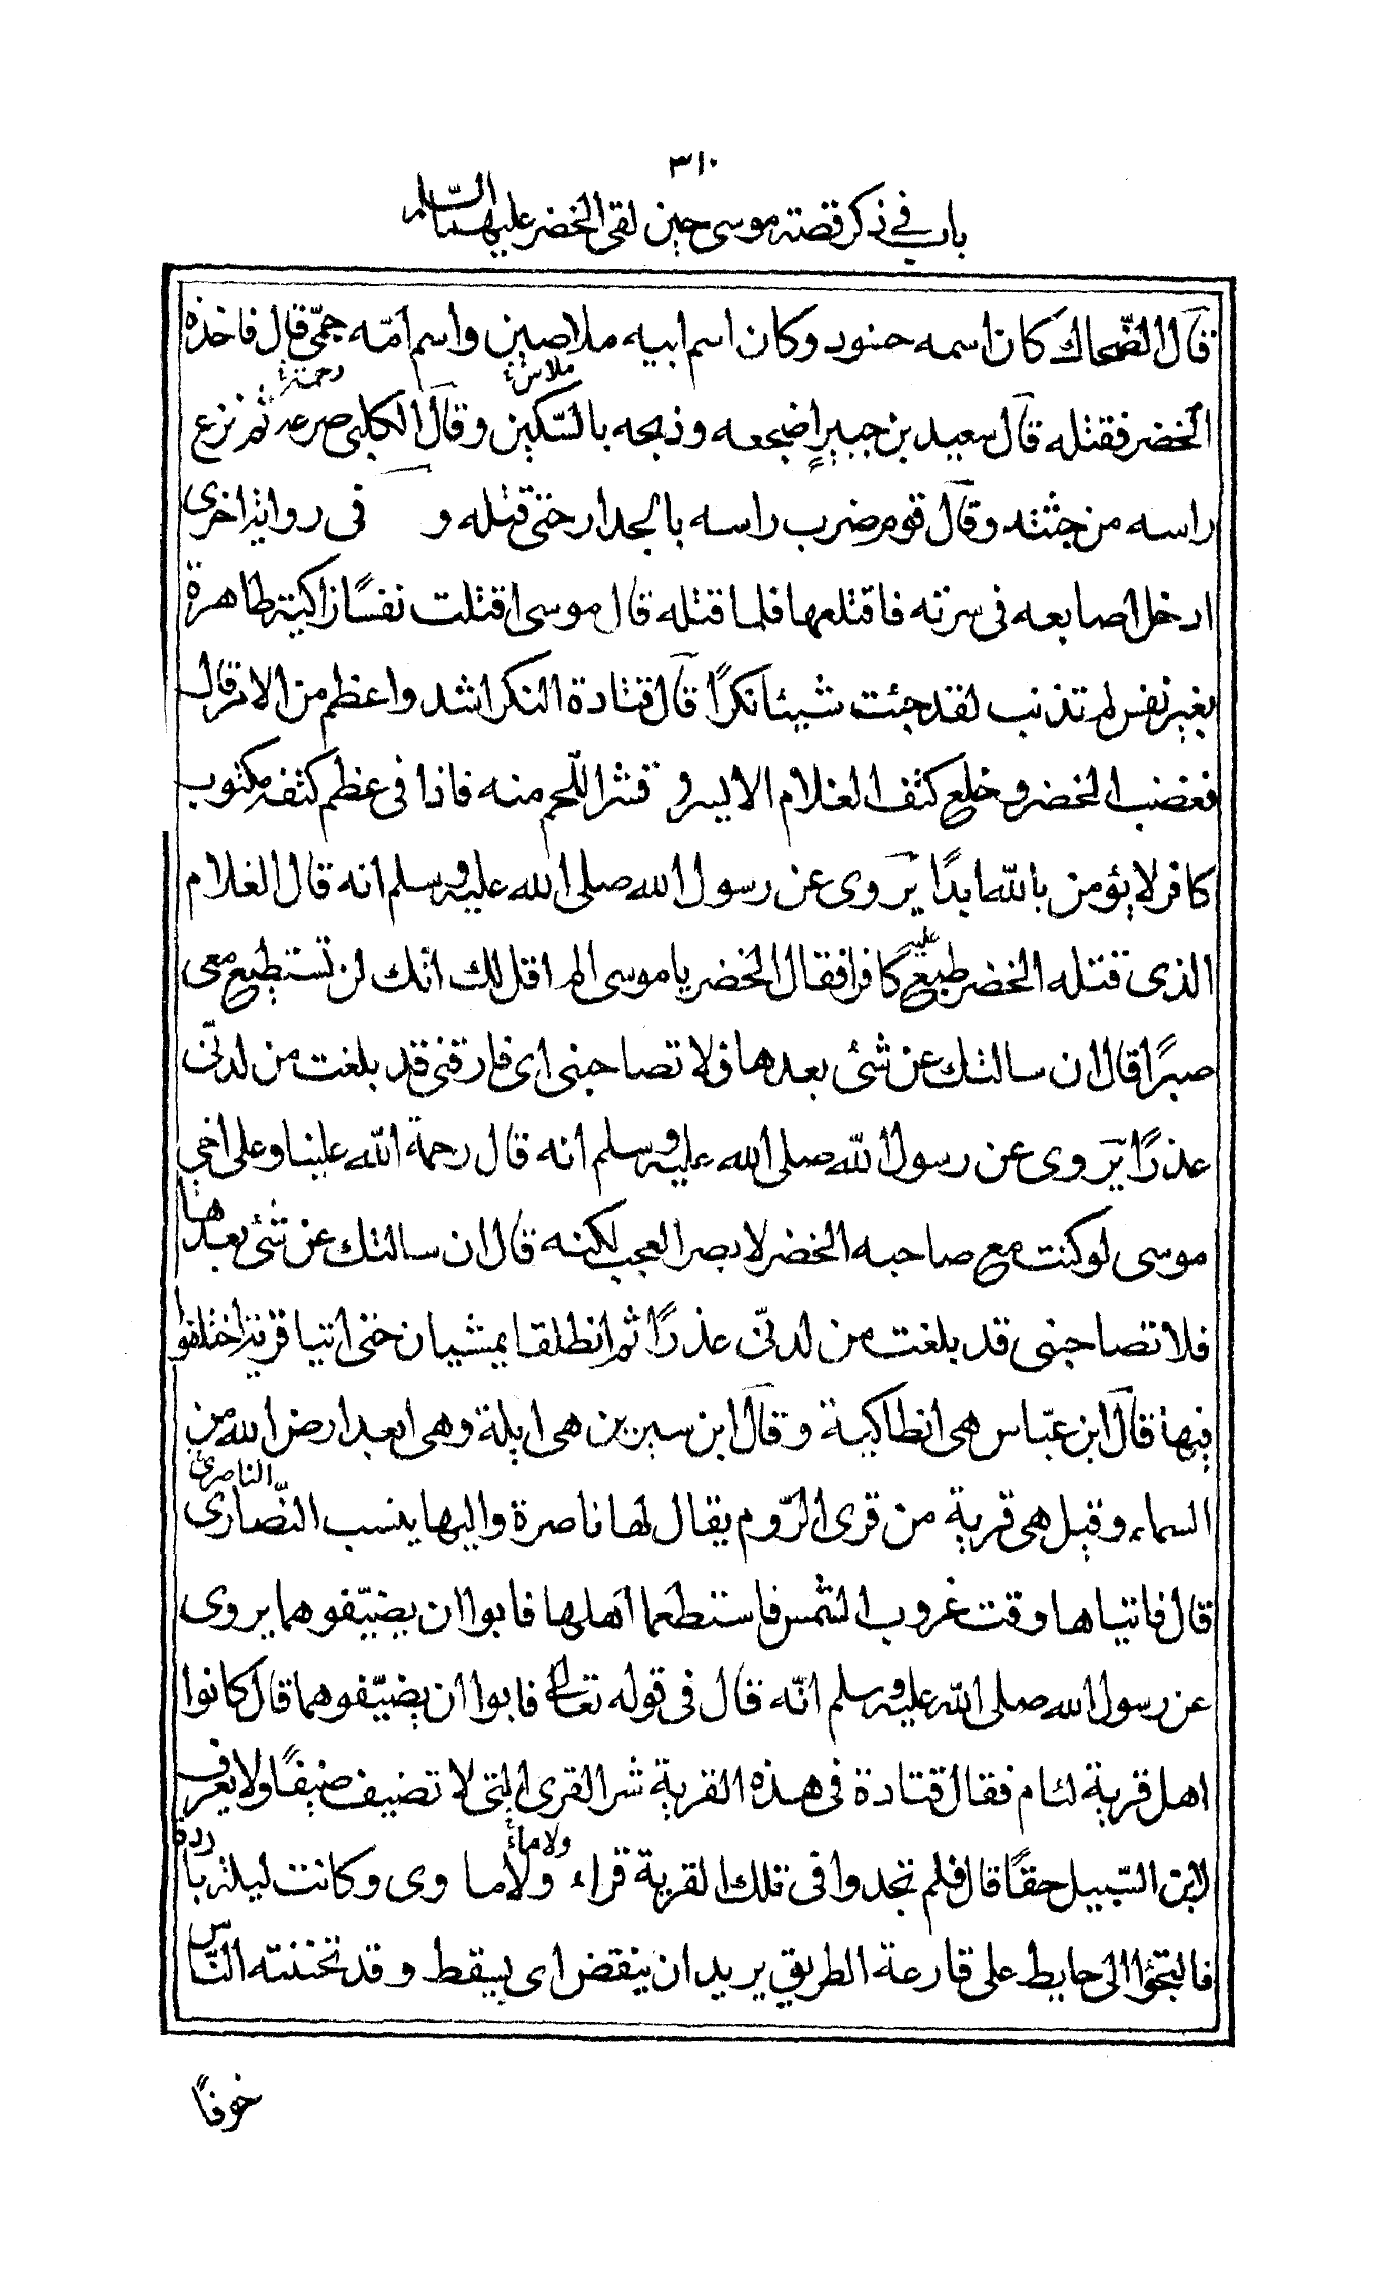 ٣١٠
باب في ذكر قصته موسى حين لقى الخضر عليهما السلام
قال الضّحاك كان اسمه حنود وكان اسم ابيه ملاصين واسم امّه جمّى قال فاخذه
ملاسن رحمة
الخضر فقتله قال سعيد بن جبيرٍ اضجعه وذبحه بالسّكين وقال الكلبى صرعه ثم نزع
راسه من جثته وقال قوم ضرب راسه بالجدار حتى قتله و فى رواية اخرى
ادخل اصابعه فى سرته فاقتلعها فلما قتله قال موسى اقتلت نفسًا زاكية طاهرة
بغير نفس لم تذنب لقد جئت شيئا نكرًا قال قتادة النكر اشد واعظم من الامر قال
فغضب الخضر وخلع كتف الغلام الايسر و قشر اللّحم منه فاذا فى عظم كتفه مكتوب
كافر لا يؤمن بالله ابدًا يروى عن رسول الله صلى الله عليه وسلم انه قال الغلام
عليه
الذى قتله الخضر طبع كافرا فقال الخضر يا موسى الم اقل لك انّك لن تستطيع معى
صبرًا قال ان سالتك عن شئى بعدها فلا تصاحبنى اى فارقنى قد بلغت من لدنّى
عذرًا يروى عن رسول الله صلى الله عليه وسلم انه قال رحمة الله علينا وعلى اخى
موسى لو كنت مع صاحبه الخضر لابصر العجب لكنه قال ان سالتك عن شئى بعدها
فلا تصاحبنى قد بلغت من لدنّى عذرًا ثم انطلقا يمشيان حتى اتيا قرية اختلفوا
فيها قال ابن عبّاس هى انطاكية وقال ابن سيرين هى ايلة وهى ابعد ارض الله من
الناصرى
السماء وقيل هى قرية من قرى الرّوم يقال لها ناصرة واليها ينسب النّصارى
قال فاتياها وقت غروب الشمس فاستطعما اهلها فابوا ان يضيّفوهما يروى
عن رسول الله صلى الله عليه وسلم انّه قال فى قوله تعالى فابوا ان يضيّفوهما قال كانوا
اهل قرية لئام فقال قتادة فى هذه القرية شر القرى التى لا تضيف ضيفًا ولا يعرف
ولا ماء
لابن السّبيل حقًا قال فلم تجدوا فى تلك القرية قراء ولا ماوى وكانت ليلة باردة
فالتجئوا الى حايط على قارعة الطريق يريد ان ينقض اى يسقط وقد تخننته النّاس
خوفًا